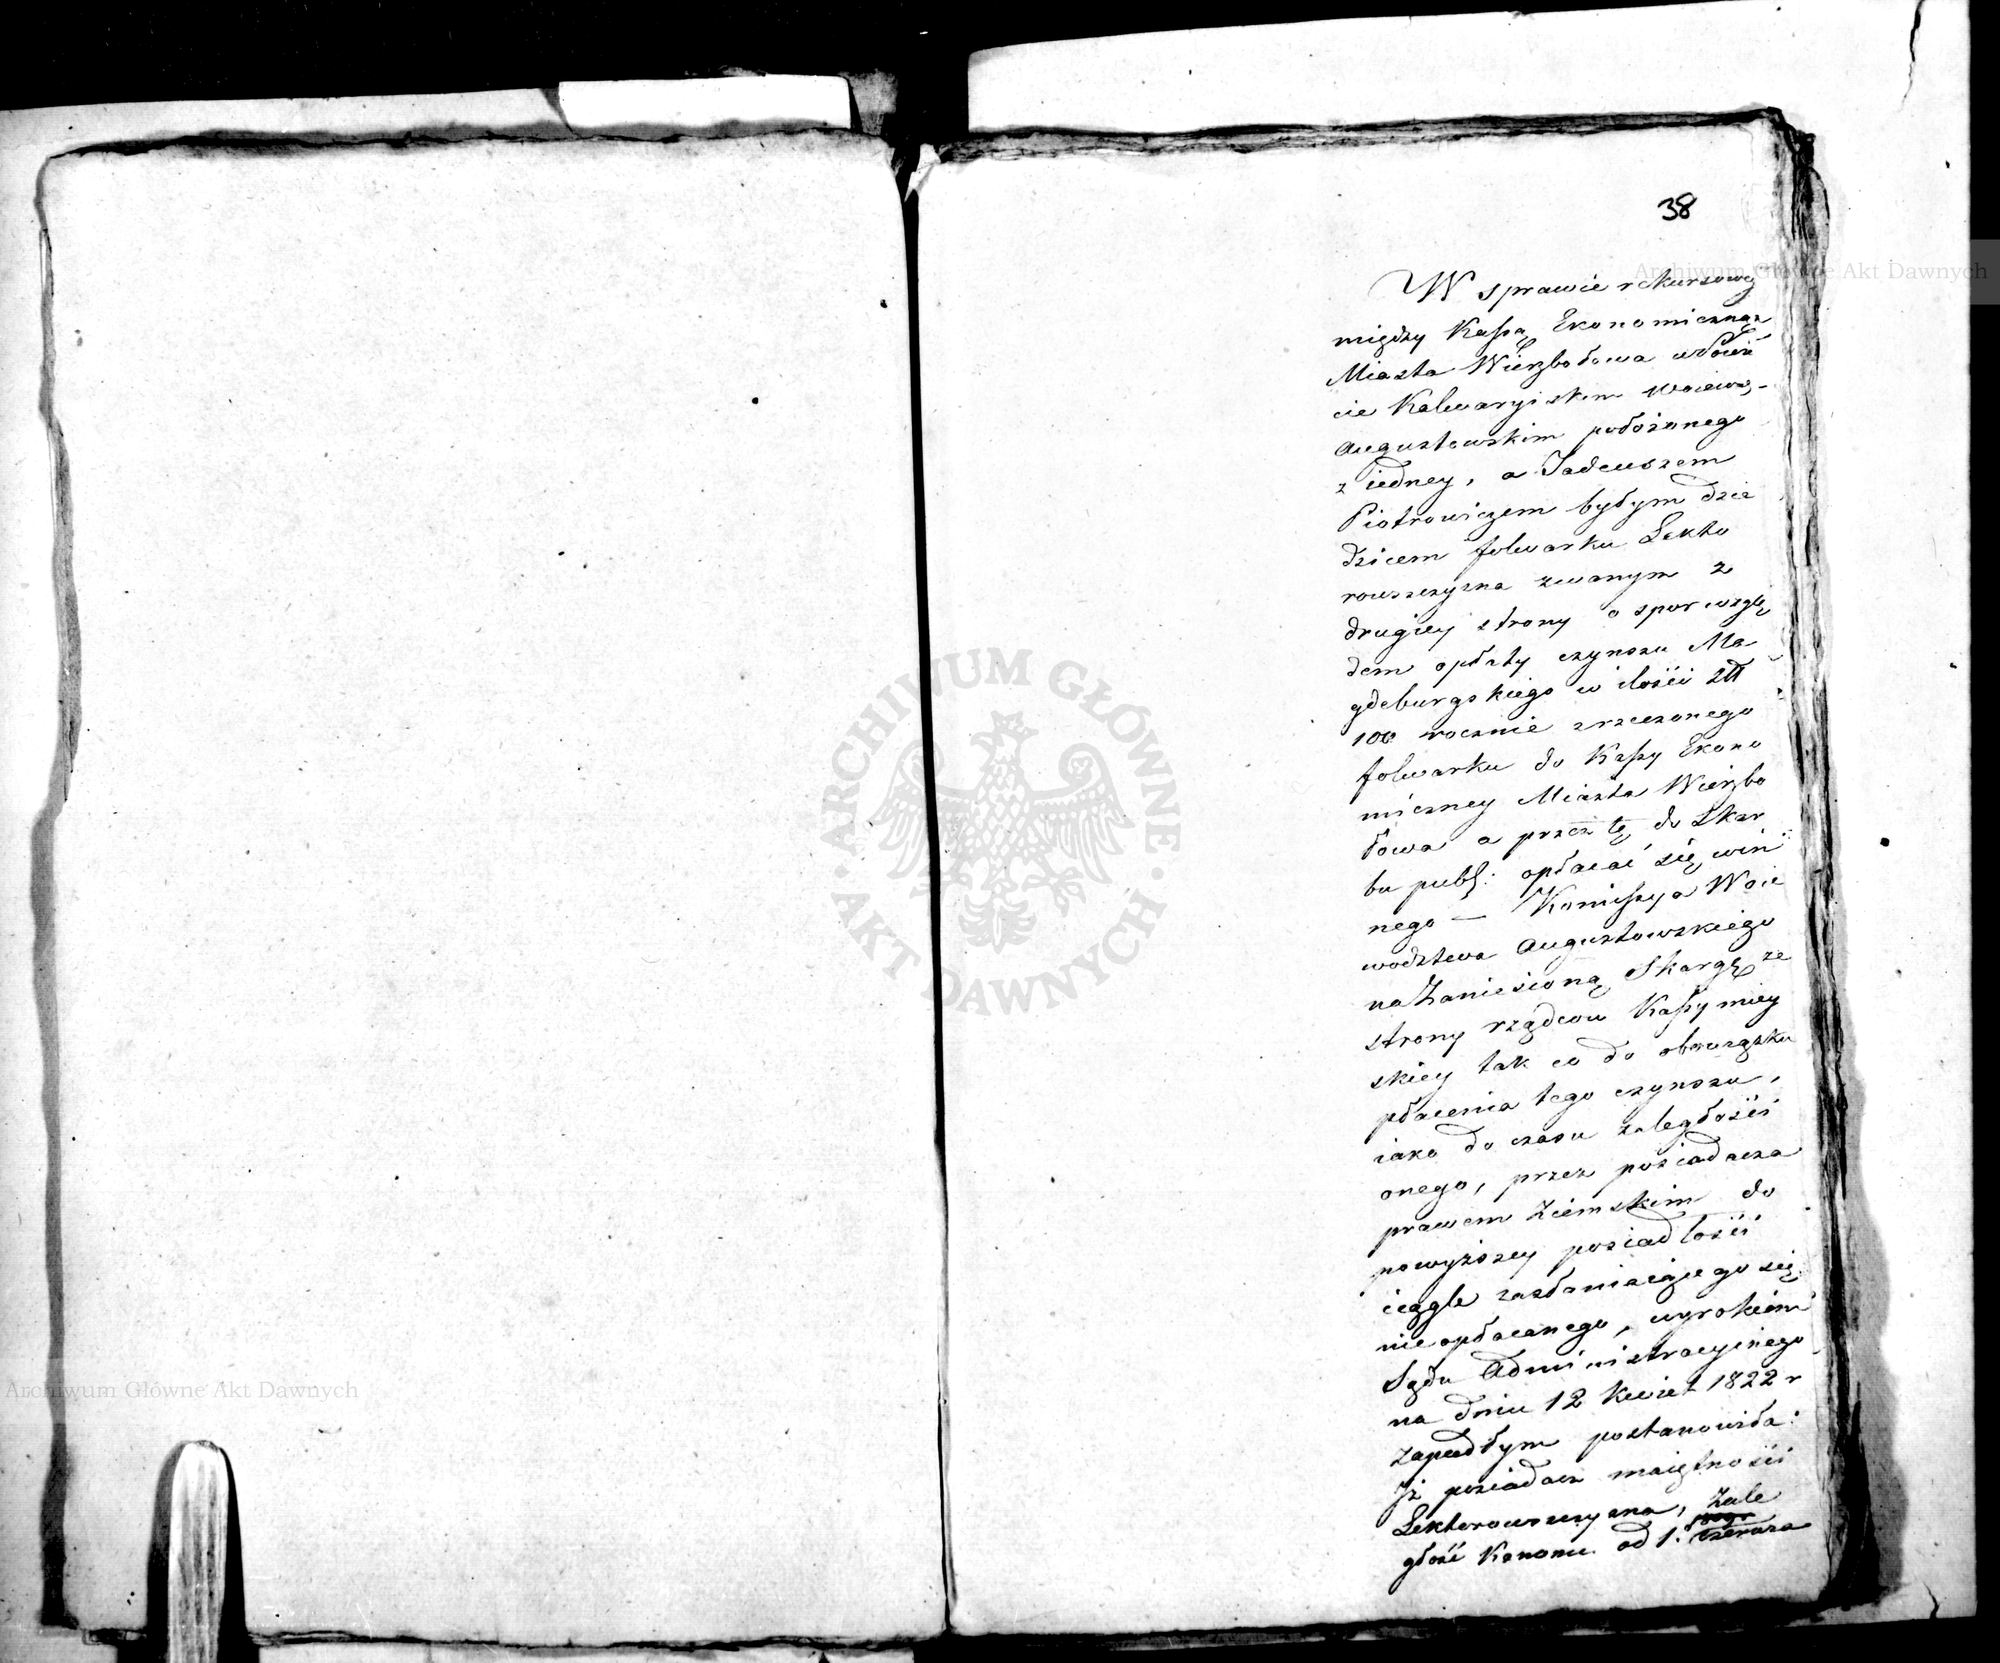 38
W sprawie rekursowey
między Kassą Ekonomiczną
Miasta Wierzbołowa w Powie
cie Kalwaryiskim Woiewo-
Augustowskim położonego
z iedney, a Tadeuszem
Piotrowiczem byłym dzie
dzicem folwarku Lekto
rowszczyzna zwanym z
drugiey strony o spor wzglę
dem opłaty czynszu Ma
gdeburgskiego w ilości Złł
100 rocznie z rzeczonego
folwarku do Kassy Ekono
miczney Miasta Wierzbo
łowa a przez tę do Skar
bu publ: opłacać się win
nego — Komissya Woie
wodztwa Augustowskiego
na Zaniesioną Skargę ze
strony rządców Kassy miey
skiey tak co do obowiązku
płacenia tego czynszu,
iako do czasu zaległości
onego, przez posiadacza
prawem Ziemskim do
powyższey posiadłości
ciągle zasłaniaiącego się
nieopłacanego, wyrokiem
Sądu Administracyinego
na dniu 12 Kwiet 1822 r
zapadłym postanowiła:
Iż posiadacz maiętności
Lektorowszczyzna, Zale
głość Kanonu od 1. Czerwca
ARCHIWUM GŁÓWNE · AKT DAWNYCH ·
Archiwum Główne Akt Dawnych
Archiwum Główne Akt Dawnych